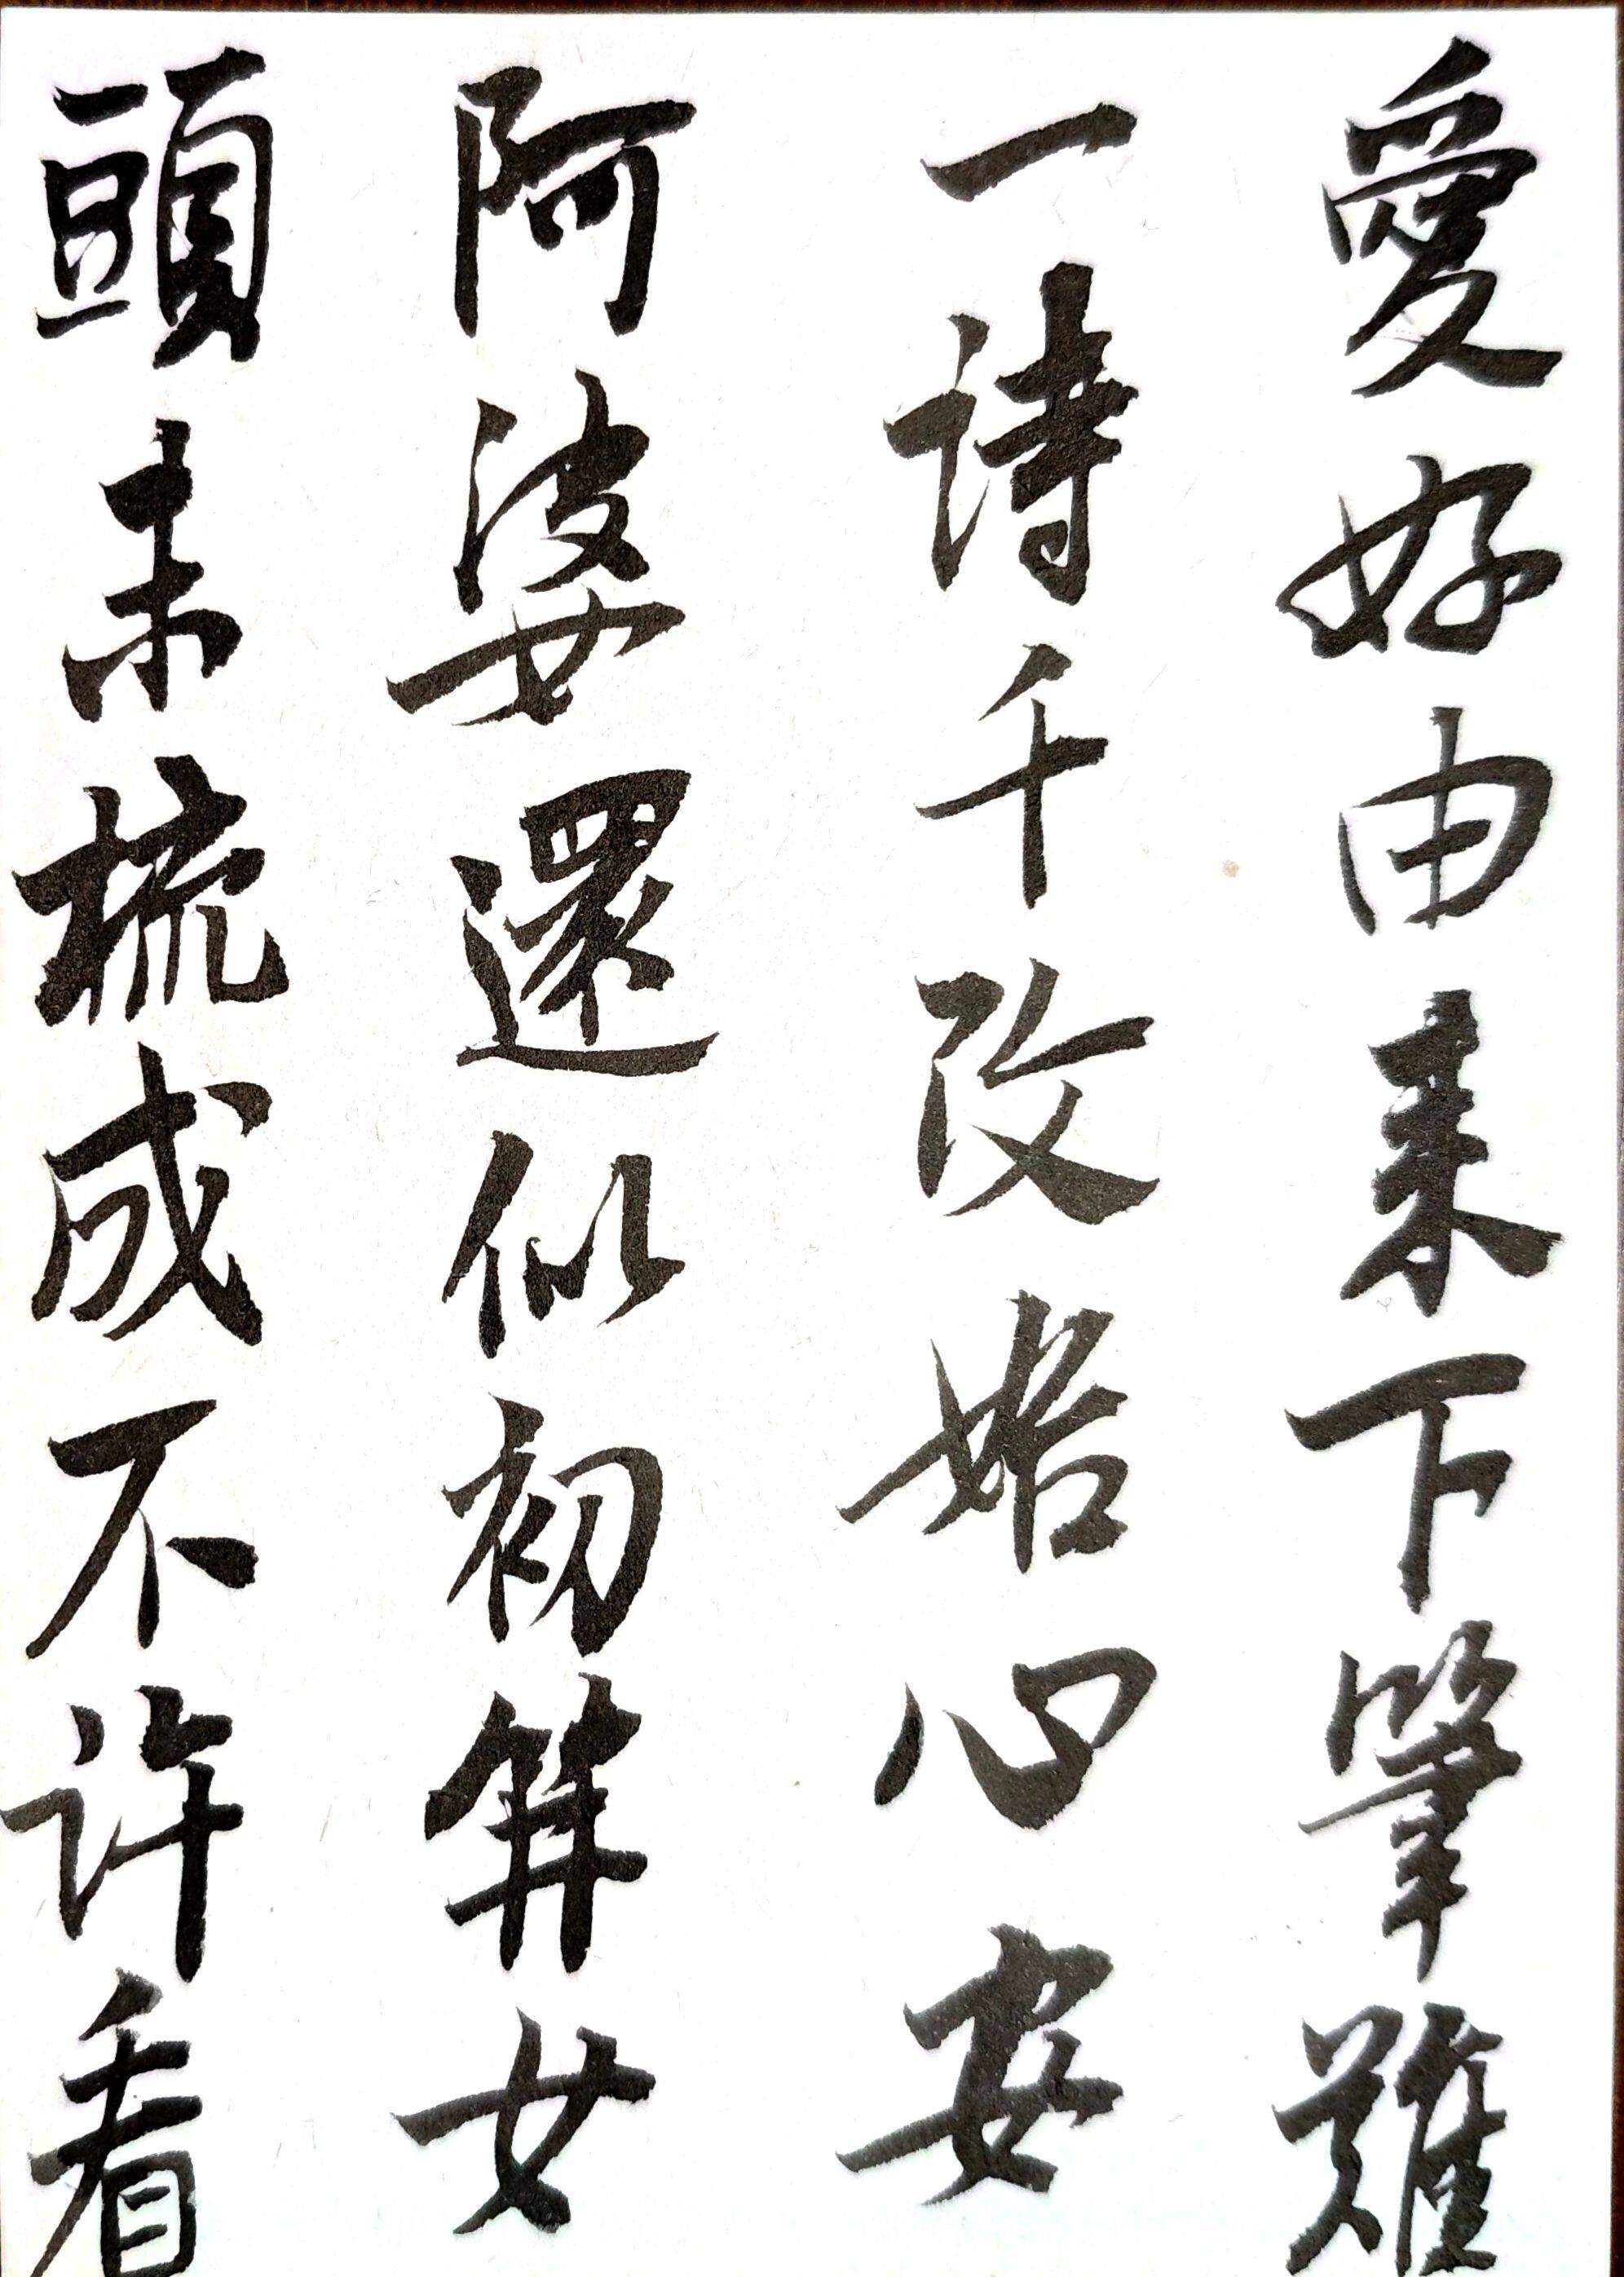 愛好由来下筆難
一詩千改始心安
阿婆還似初笄女
頭未梳成不許看